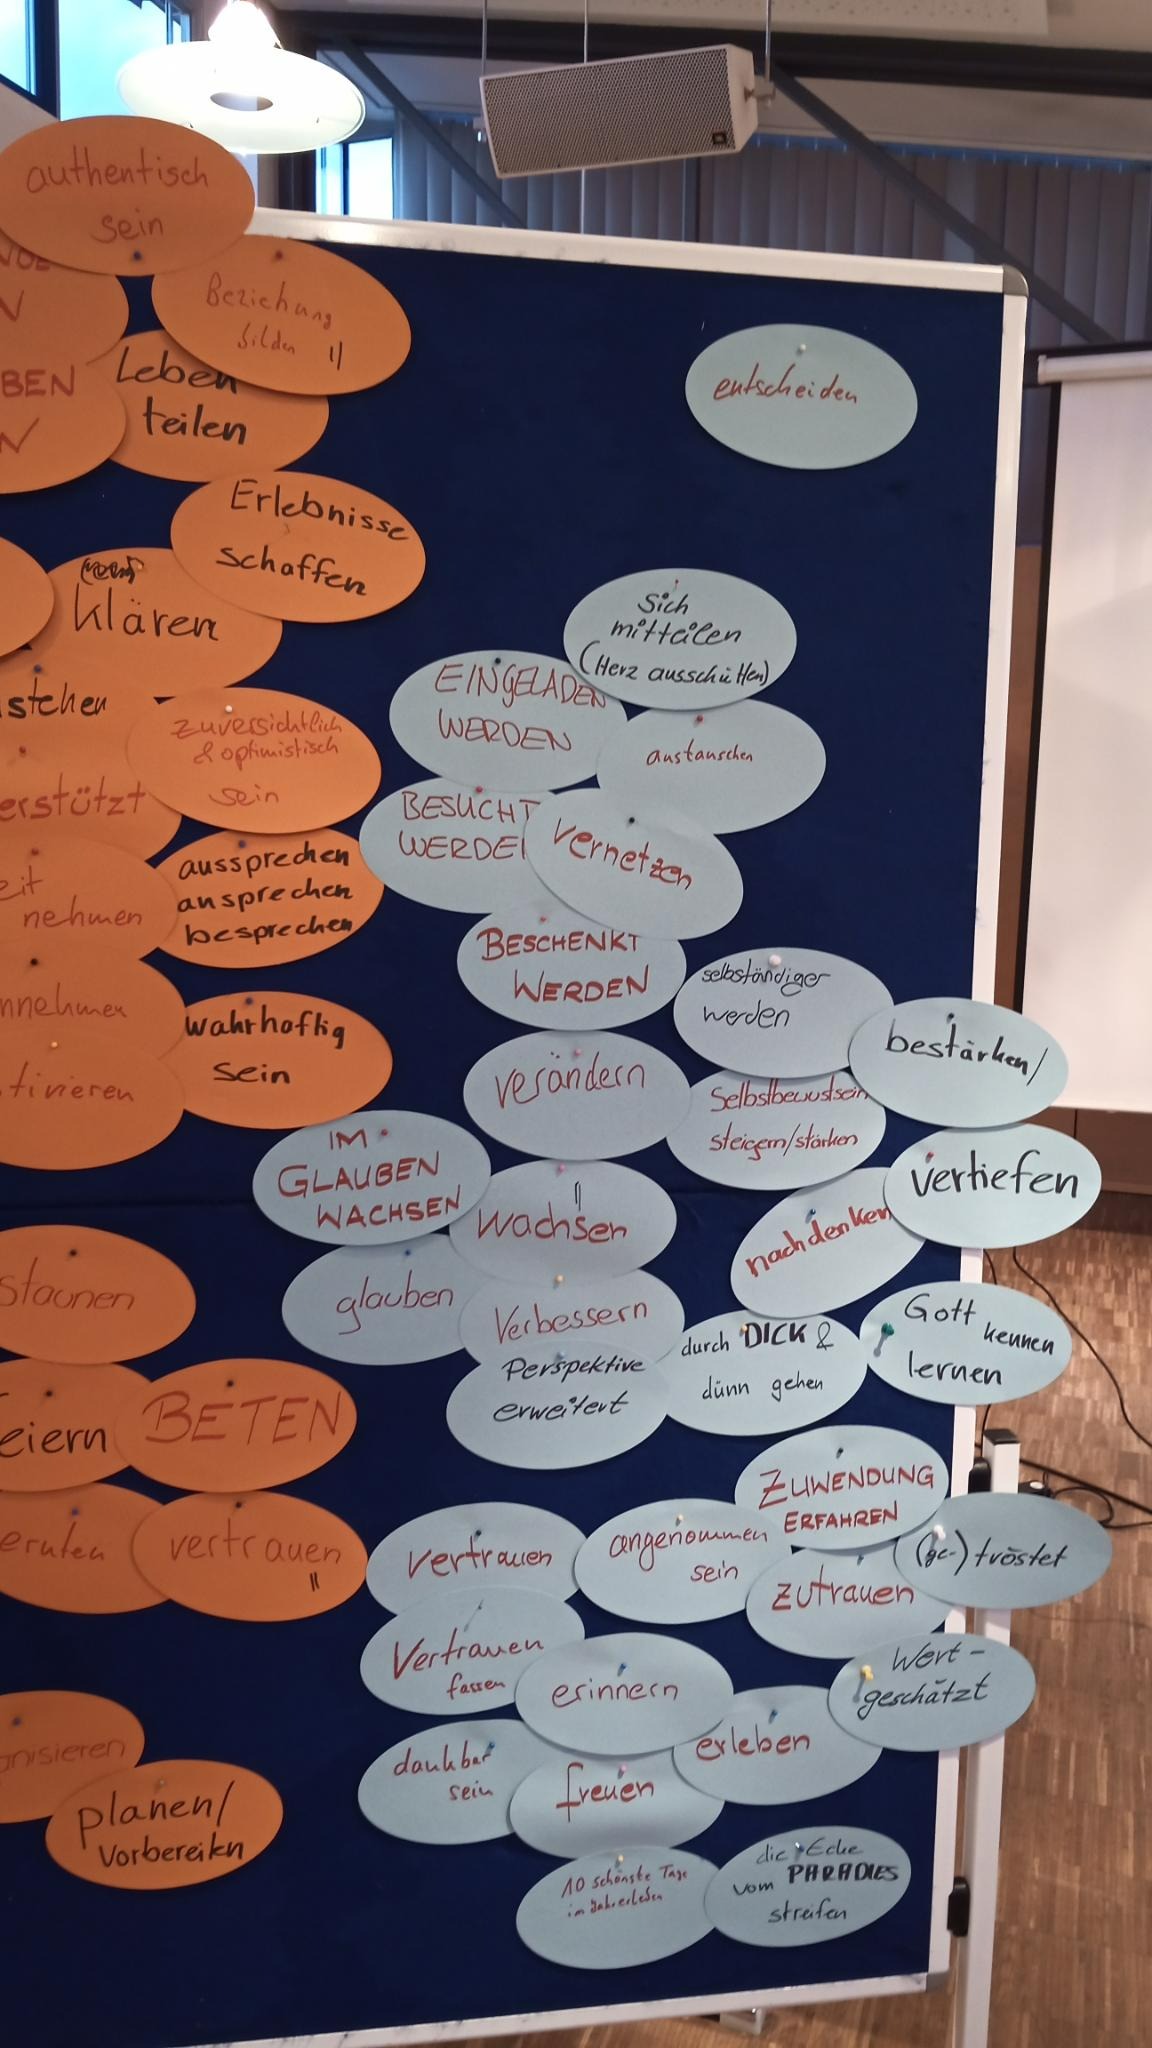 authentisch
sein
Beziehung
bilden ||
Leben
teilen
BEN
Erlebnisse
schaffen
klären
stehen
zuversichtlich
& optimistisch
sein
erstützt
aussprechen
ansprechen
besprechen
eit
nehmen
nnehmen
wahrhaftig
sein
tivieren
staunen
eiern
BETEN
vertrauen
||
nisieren
planen/
vorbereiten
entscheiden
Sich
mitteilen
(Herz ausschütten)
EINGELADEN
WERDEN
austauschen
BESUCHT
WERDEN
vernetzen
BESCHENKT
WERDEN
selbständiger
werden
bestärken/
verändern
Selbstbewustsein
steigern/stärken
IM
GLAUBEN
WACHSEN
||
wachsen
vertiefen
nachdenken
glauben
Verbessern
Gott kennen
lernen
durch DICK &
dünn gehen
Perspektive
erweitert
ZUWENDUNG
ERFAHREN
vertrauen
angenommen
sein
(ge-) tröstet
zutrauen
Vertrauen
fassen
erinnern
Wert-
geschätzt
erleben
dankbar
sein
freuen
10 schönste Tage
im Jahr erleben
die Ecke
vom PARADIES
streifen